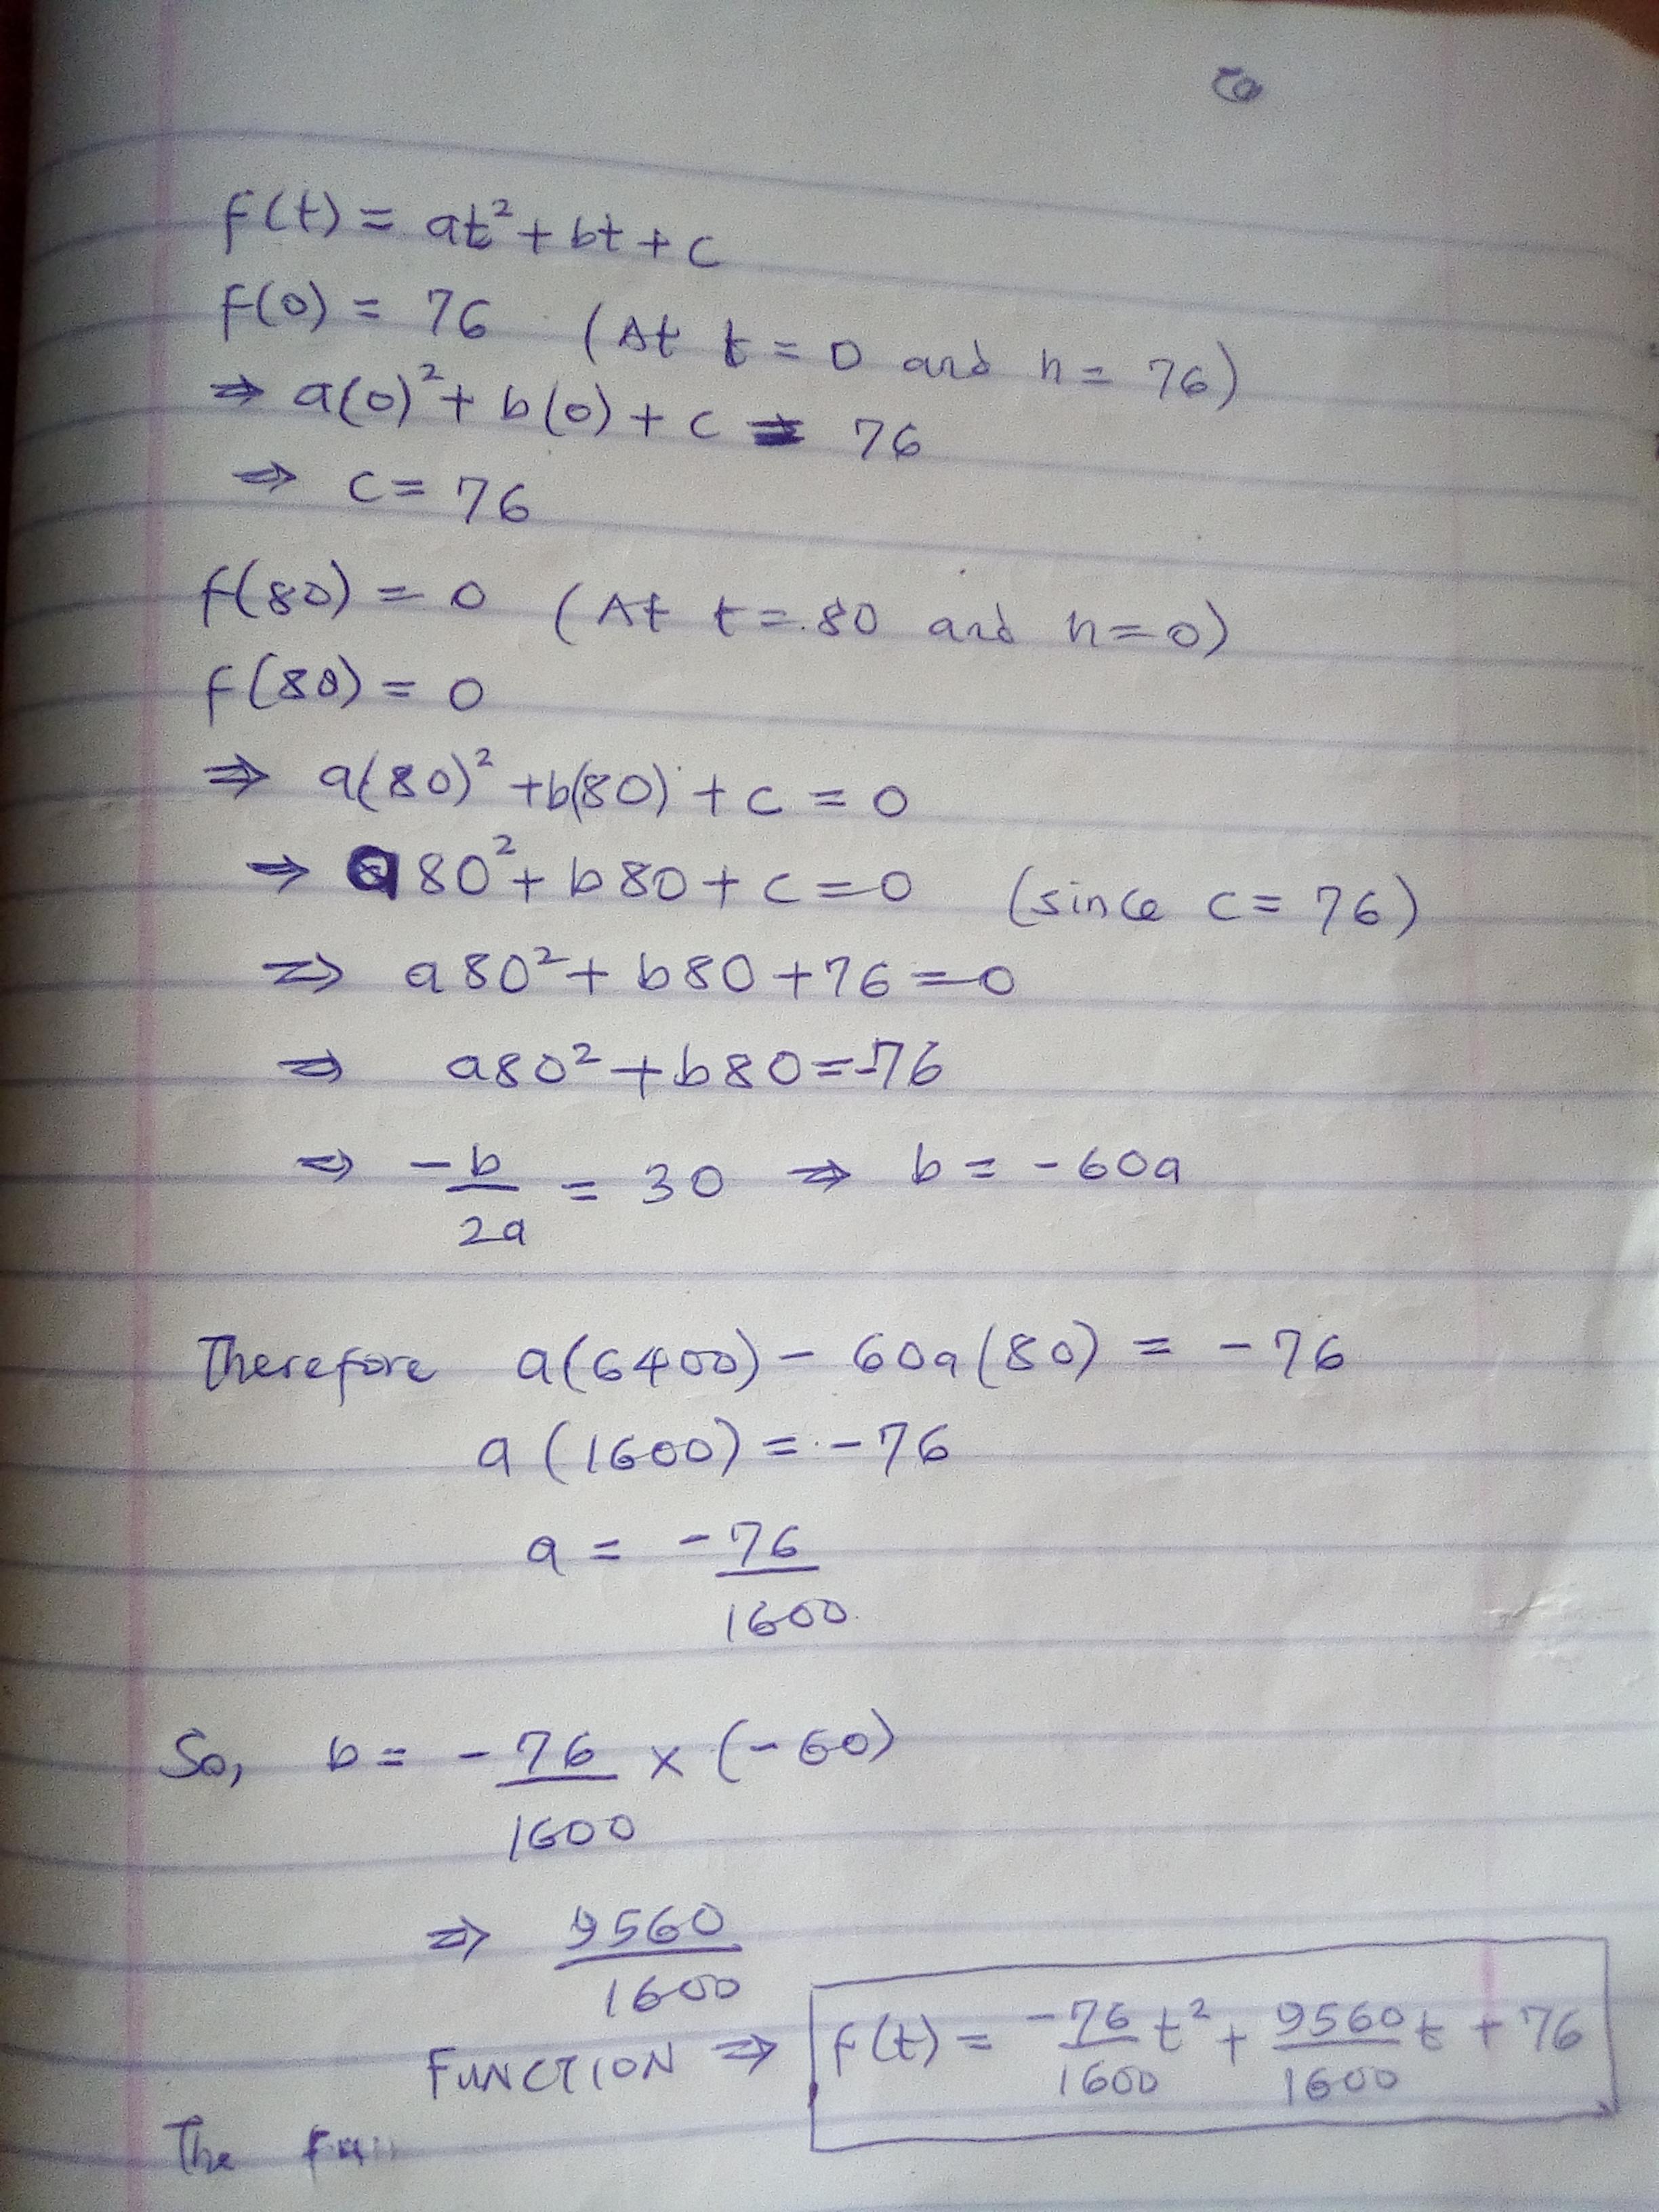 f(t) = at² + bt + c
f(0) = 76 (At t = 0 and n = 76)
⇒ a(0)² + b(0) + c = 76
⇒ c = 76
f(80) = 0 (At t = 80 and n = 0)
f(80) = 0
⇒ a(80)² + b(80) + c = 0
⇒ a80² + b80 + c = 0 (since c = 76)
⇒ a80² + b80 + 76 = 0
⇒ a80² + b80 = -76
⇒ -b/2a = 30 ⇒ b = -60a
Therefore a(6400) - 60a(80) = -76
a(1600) = -76
a = -76/1600
So, b = -76/1600 × (-60)
⇒ 9560/1600
FUNCTION ⇒ f(t) = -76/1600 t² + 9560/1600 t + 76
The